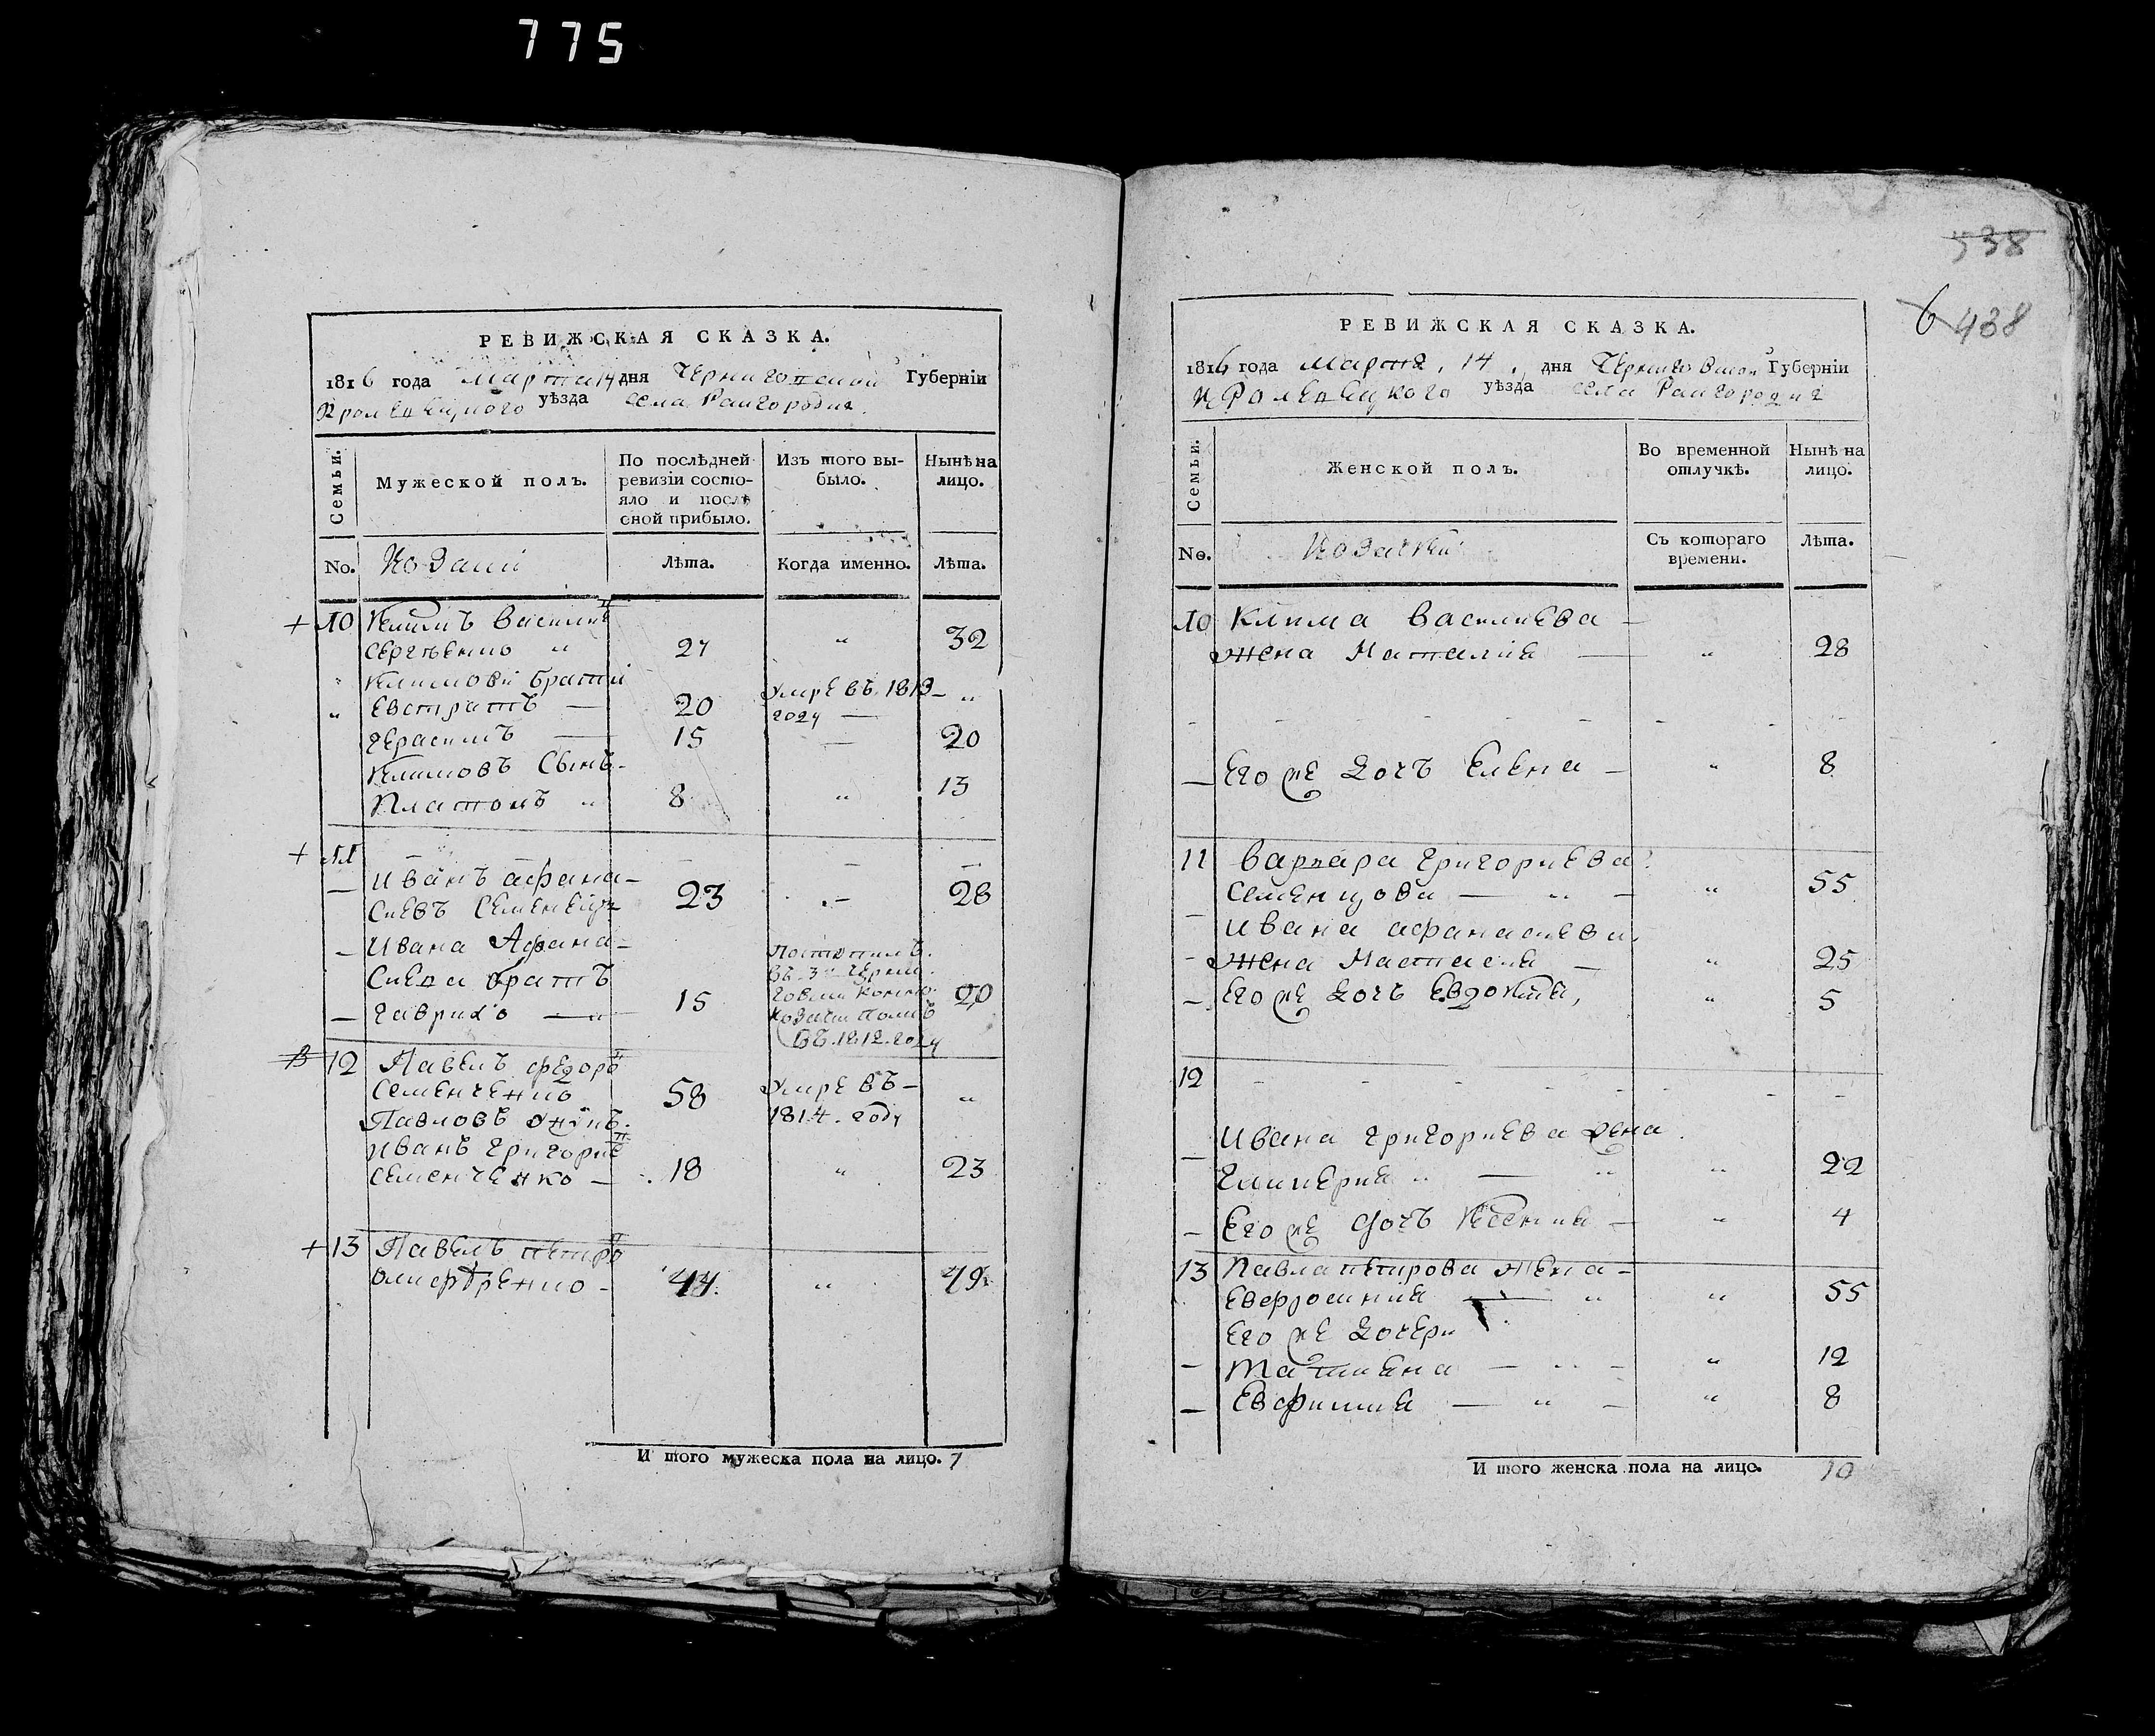 775
РЕВИЖСКАЯ СКАЗКА.
1816 года Марта 14 дня Черниговской Губернїи
Кролевецкого уѣзда села Райгородка
Семьи.
Мужеской полъ.
По послѣдней ревизїи состояло и послѣ оной прибыло.
Изъ того выбыло.
Нынѣ на лицо.
No.
Козаки
Лѣта.
Когда именно.
Лѣта.
+ 10 Климъ Василиевъ
Сергѣенко „ 27 „ 32
Климови братиі
„ Евстратъ — 20 Умре въ 1813 году — „
Герасимъ — 15 — 20
Климовъ Сынъ
Платонъ „ 8 „ 13
+ 11 — — — — —
— Иванъ Афана-
сиевъ Семенецъ 23 — 28
— Ивана Афана-
сиева братъ
— Гаврило — 15 Поступилъ въ 3й Черниговски конно Козачи полкъ въ 1812 году 20
12 Павелъ Федоровъ
Семенченко 58 Умре въ 1814 году „
Павловъ внукъ
Иванъ Григориевъ
Семенченко — 18 „ 23
+ 13 Павелъ Петровъ
44 „ 49
И того мужеска пола на лицо. 7
538
6 438
РЕВИЖСКАЯ СКАЗКА.
1816 года Марта, 14, дня Черниговской Губернїи
Кролевецкого уѣзда села Райгородка
Семьи.
Женской полъ.
Во временной отлучкѣ.
Нынѣ на лицо.
No.
Козачки
Съ котораго времени.
Лѣта.
10 Клима Василиева —
жена Наталия — „ 28
- - - - - - - -
— Его же Дочъ Елена — „ 8
11 Варвара Григориева
Семенцова — „ — „ 55
— Ивана Афанасиева
- жена Настасия — „ 25
— Его же Дочъ Евдокия, „ 5
12 - - - - - - -
Ивана Григориева жена
— Гликерия „ — „ „ 22
— Его же Дочъ Ксения — „ 4
13 Павла Петрова жена —
Евфросиния — „ „ 55
Его же Дочери
— Татияна — „ — „ 12
— Евфимия — „ — „ 8
И того женска пола на лицо. 10